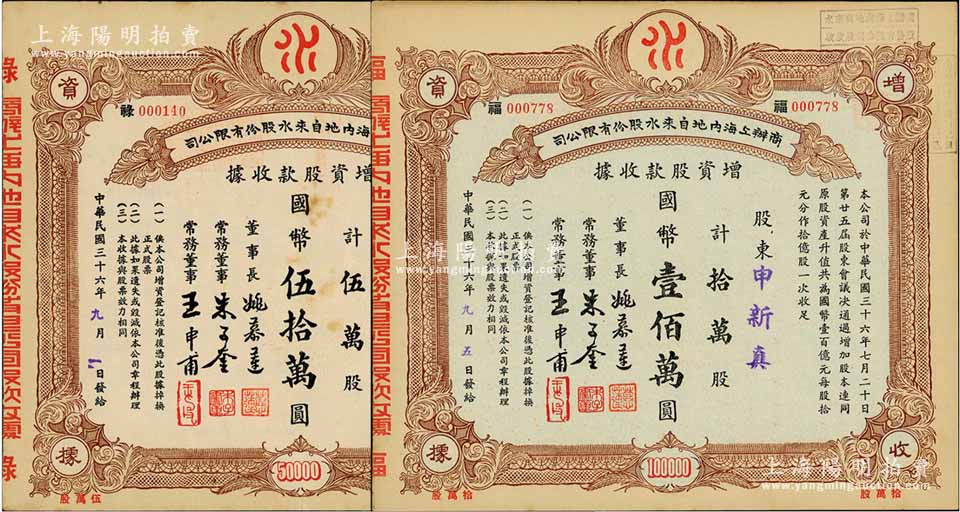 上海陽明拍賣
www.yangmingauction.com
祿
資
祿 000140
海內地自來水股份有限公司
增資股款收據
國幣伍拾萬圓
計伍萬股
董事長 姚慕蓮
常務董事 朱子奎
常務董事 王申甫
(一) 俟本公司增資登記核准後憑此股據掉換正式股票
(二) 此據如果遺失或毀滅依本公司章程辦理
(三) 本收據與股票效力相同
中華民國三十六年九月一日發給
據
祿
50000
伍萬股
福
資
增
福 000778
福 000778
商辦上海內地自來水股份有限公司
增資股款收據
本公司於中華民國三十六年七月二十日
第廿五屆股東會議決通過增加股本連同
原股資產升值共為國幣壹百億元每股拾
元分作拾億股一次收足
股東 申新真
計拾萬股
國幣壹佰萬圓
董事長 姚慕蓮
常務董事 朱子奎
常務董事 王申甫
(一) 俟本公司增資登記核准後憑此股據掉換
正式股票
(二) 此據如果遺失或毀滅依本公司章程辦理
(三) 本收據與股票效力相同
中華民國三十六年九月五日發給
據
收
福
100000
拾萬股
拾萬股
上海陽明拍賣
www.yangmingauction.com